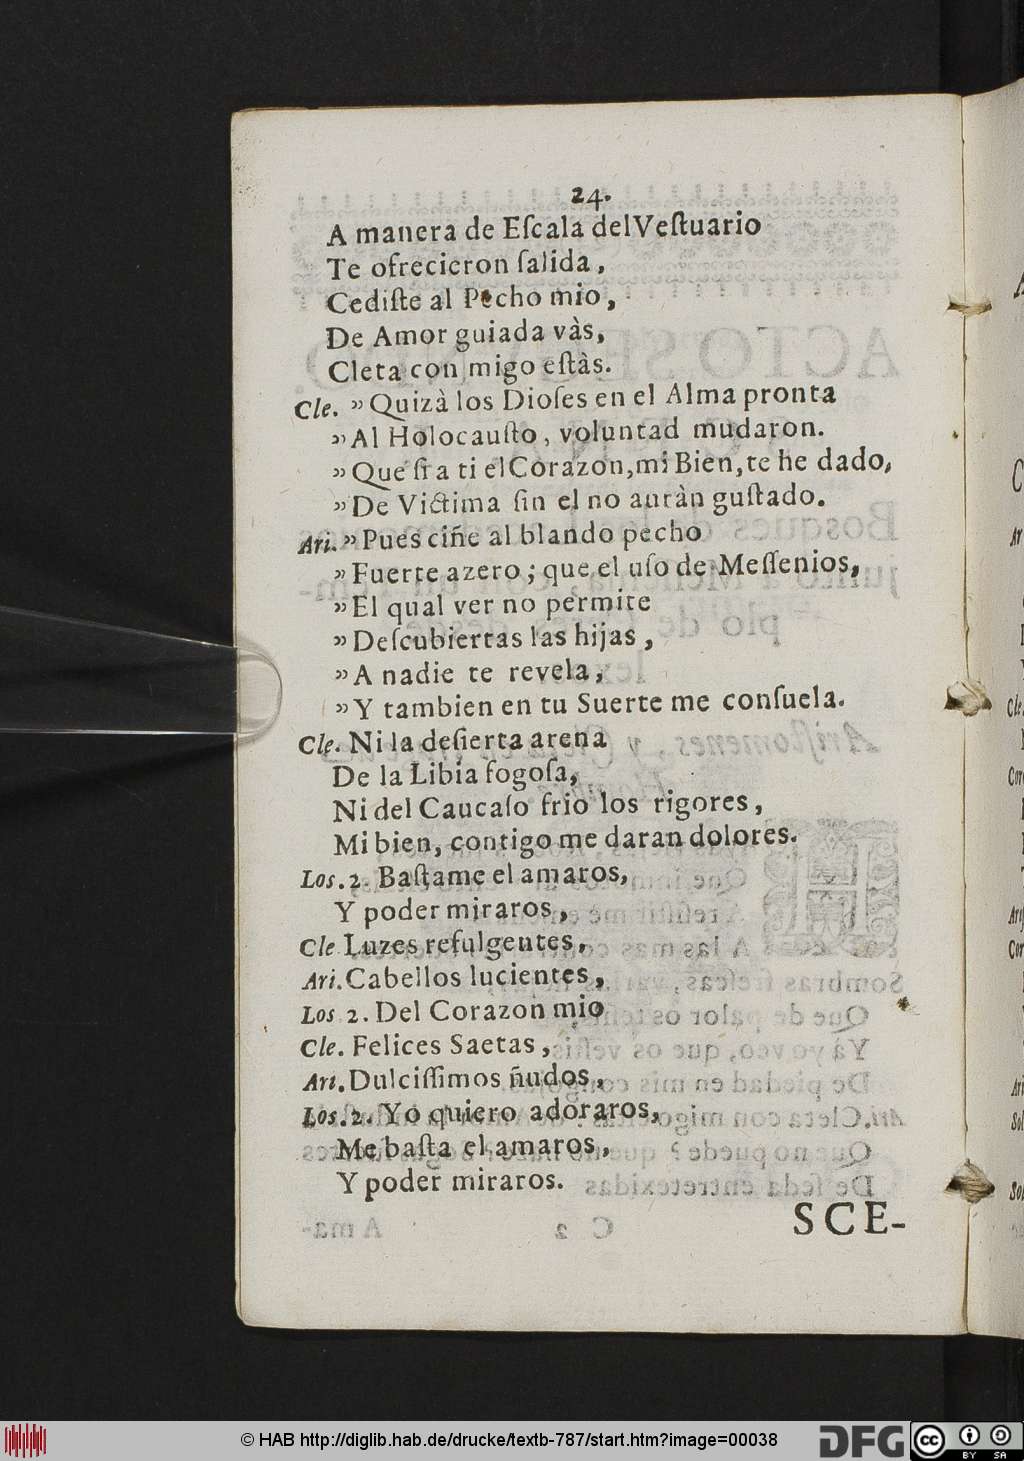 24.
A manera de Eſcala del Veſtuario
Te ofrecieron ſalida,
Cediſte al Pecho mio,
De Amor guiada vàs,
Cleta con migo eſtàs.
Cle. „Quizà los Dioſes en el Alma pronta
„Al Holocauſto, voluntad mudaron.
„Que ſi a ti el Corazon, mi Bien, te he dado,
„De Victima ſin el no auràn guſtado.
Ari. „Pues ciñe al blando pecho
„Fuerte azero; que el uſo de Meſſenios,
„El qual ver no permite
„Deſcubiertas las hijas,
„A nadie te revela,
„Y tambien en tu Suerte me conſuela.
Cle. Ni la deſierta arena
De la Libia fogoſa,
Ni del Caucaſo frio los rigores,
Mi bien, contigo me daran dolores.
Los. 2. Baſtame el amaros,
Y poder miraros,
Cle Luzes refulgentes,
Ari. Cabellos lucientes,
Los 2. Del Corazon mio
Cle. Felices Saetas,
Ari. Dulciſſimos ñudos,
Los. 2. Yo quiero adoraros,
Me baſta el amaros,
Y poder miraros.
SCE-
© HAB http://diglib.hab.de/drucke/textb-787/start.htm?image=00038
DFG
cc
BY SA